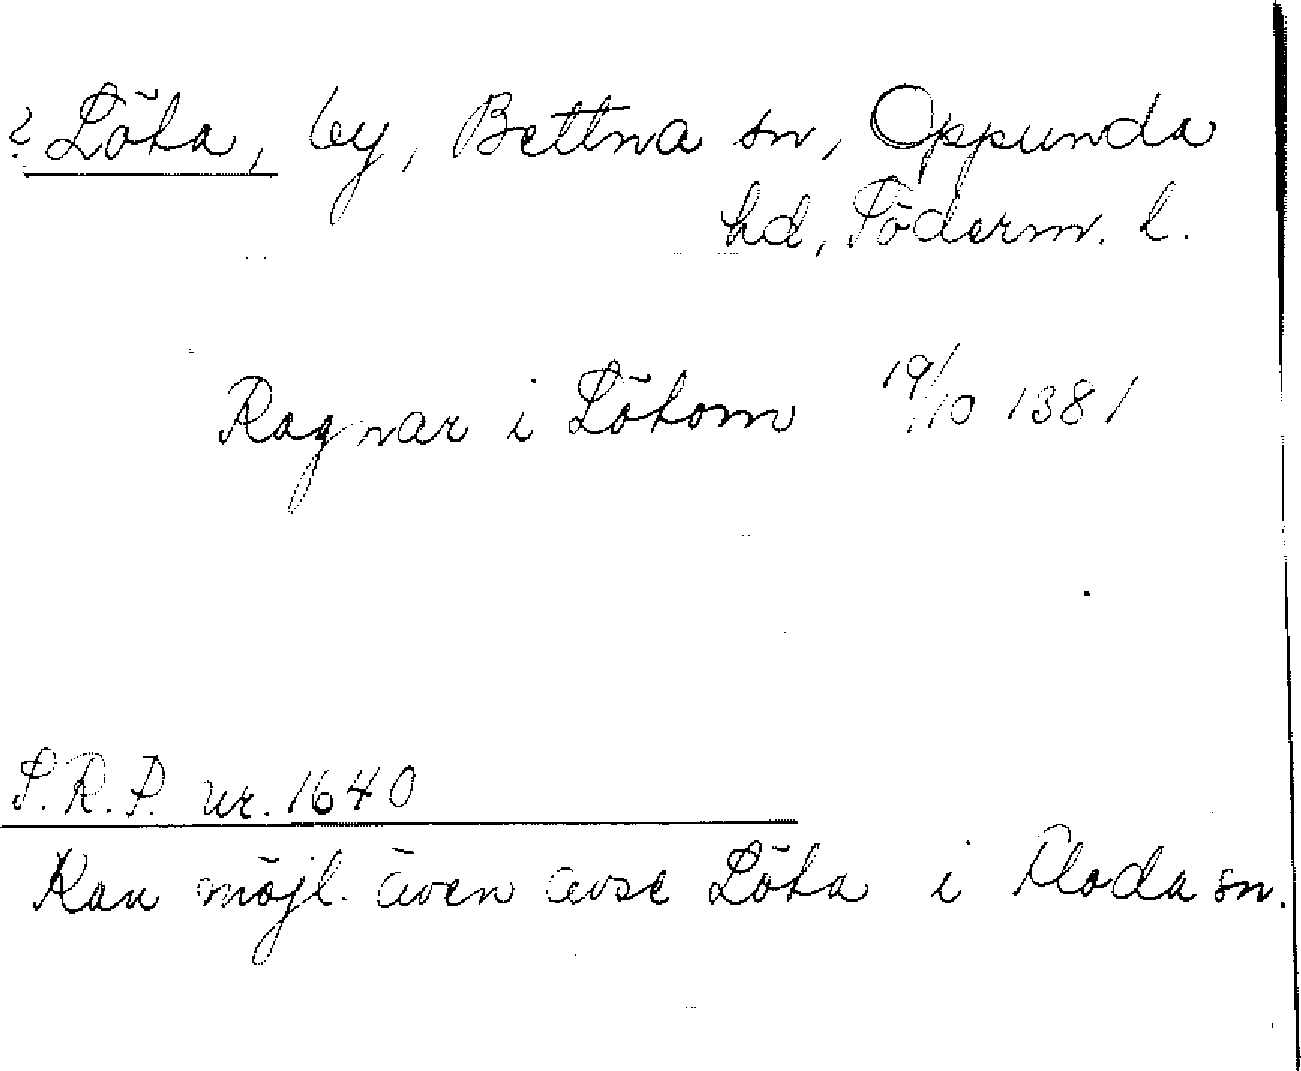 ? Löta, by, Bettna sn, Oppunda
hd, Söderm. l.
Ragnar i Lötom 19/10 1381
S.R.P. nr. 1640
Kan möjl. även avse Löta i Floda sn.